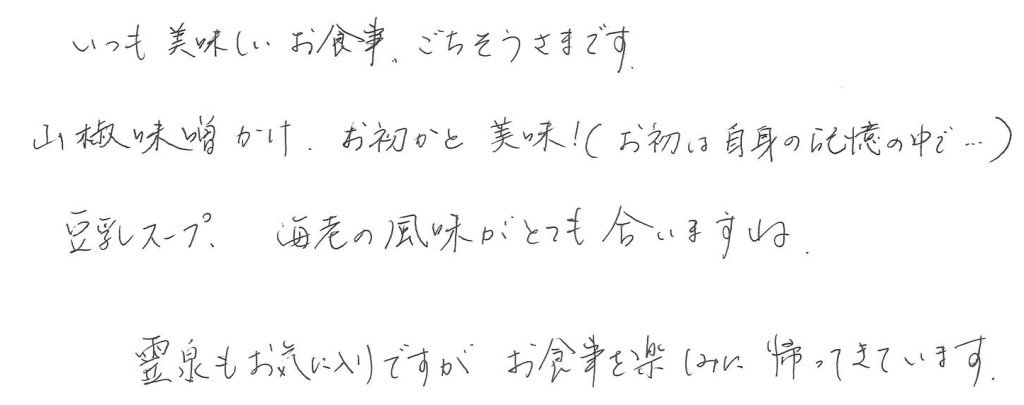 いつも美味しいお食事、ごちそうさまです.
山椒味噌かけ. お初かと 美味!(お初は自身の記憶の中で…)
豆乳スープ、 海老の風味がとても合いますね.
霊泉もお気に入りですが お食事を楽しみに帰ってきています.